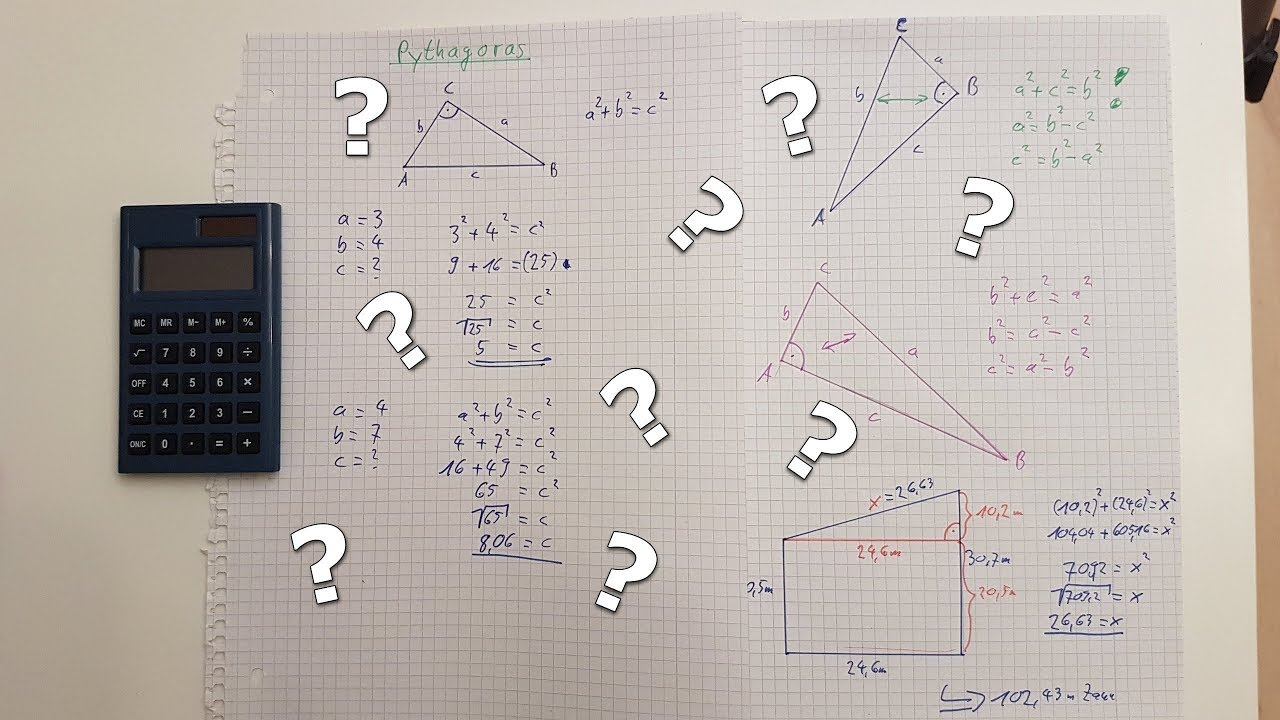 Pythagoras
C
b
a
A
c
B
a²+b²=c²
a = 3
b = 4
c = ?
3²+4²=c²
9+16=(25)
25 = c²
√25 = c
5 = c
a = 4
b = 7
c = ?
a²+b²=c²
4²+7²=c²
16+49=c²
65 = c²
√65 = c
8,06 = c
C
a
b
B
c
A
a²+c²=b²
a²=b²-c²
c²=b²-a²
C
b
a
A
c
B
b²+c²=a²
b²=a²-c²
c²=a²-b²
x=26,63
10,2m
24,6m
30,7m
20,5m
,5m
24,6m
(10,2)²+(24,6)²=x²
104,04+605,16=x²
709,2=x²
√709,2=x
26,63=x
102,43m Zaun
MC MR M− M+ %
√ 7 8 9 ÷
OFF 4 5 6 ×
CE 1 2 3 −
ON/C 0 · = +
?
?
?
?
?
?
?
?
?